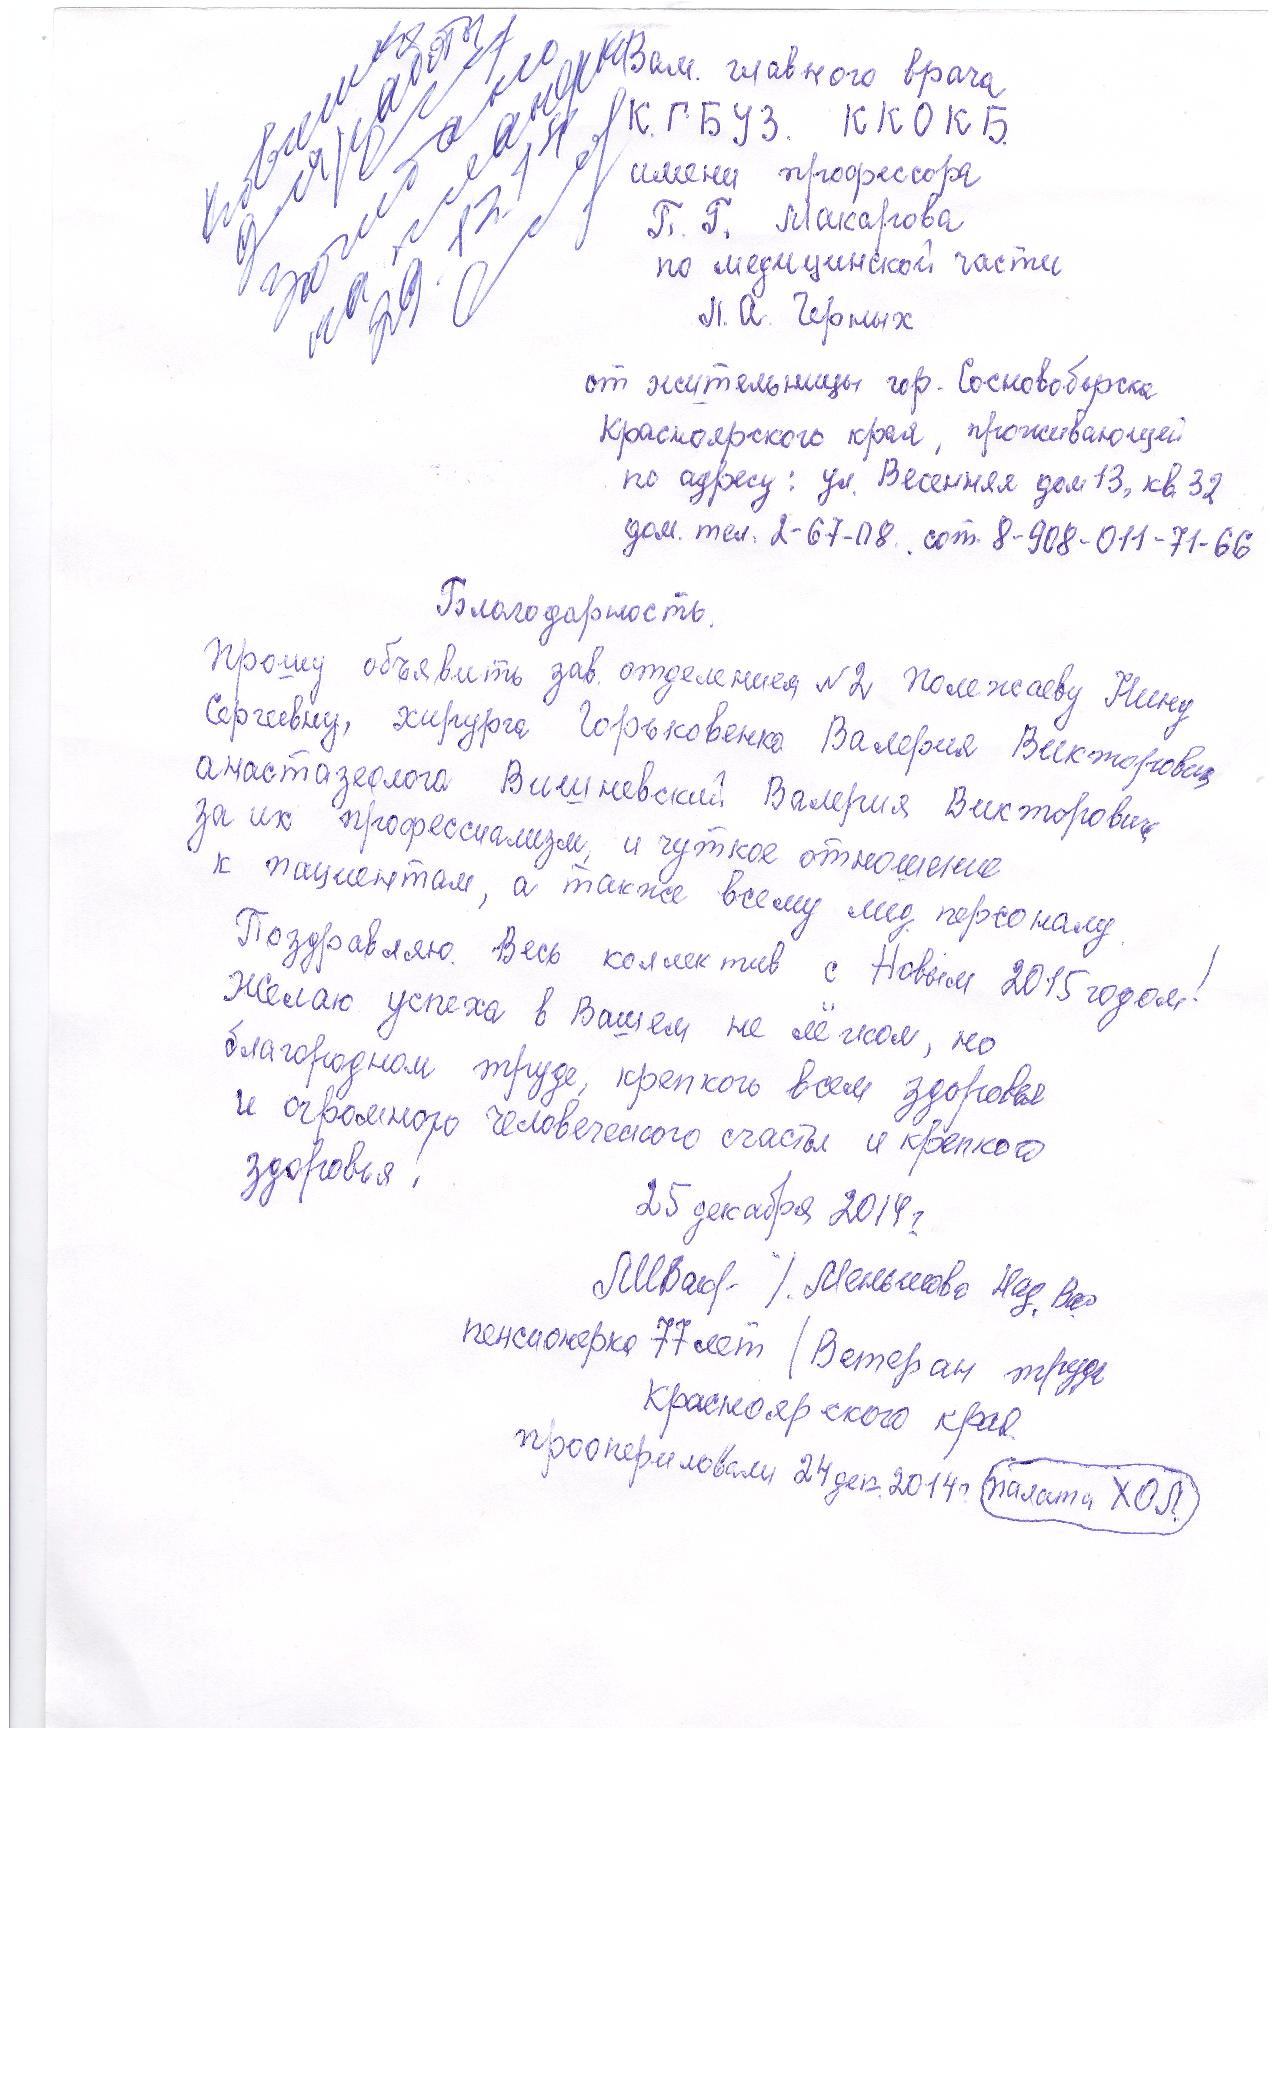 Зам. главного врача
К.Г.БУЗ. ККОКБ.
имени профессора
П. Г. Макарова
по медицинской части
Л. А. Черных
от жительницы гор. Сосновоборска
Красноярского края, проживающей
по адресу: ул. Весенняя дом 13, кв 32
дом. тел. 2-67-08. сот. 8-908-011-71-66
Благодарность.
Прошу объявить зав. отделения №2 Полежаеву Нину
Сергеевну, хирурга Горьковенка Валерия Викторович
анастазеолога Вишневский Валерия Викторович
за их профессиализм, и чуткое отношение
к пациентам, а также всему мед. персоналу.
Поздравляю. Весь коллектив с Новым 2015 годом!
Желаю успеха в Вашем не лёгком, но
благородном труде, крепкого всем здоровья
и огромного человеческого счастья и крепкого
здоровья!
25 декабря 2014 г.
/. Меньшова Над. Вас
пенсионерка 77 лет / Ветеран труда
Красноярского края
прооперировали 24 дек. 2014 г. палата ХОЛ.